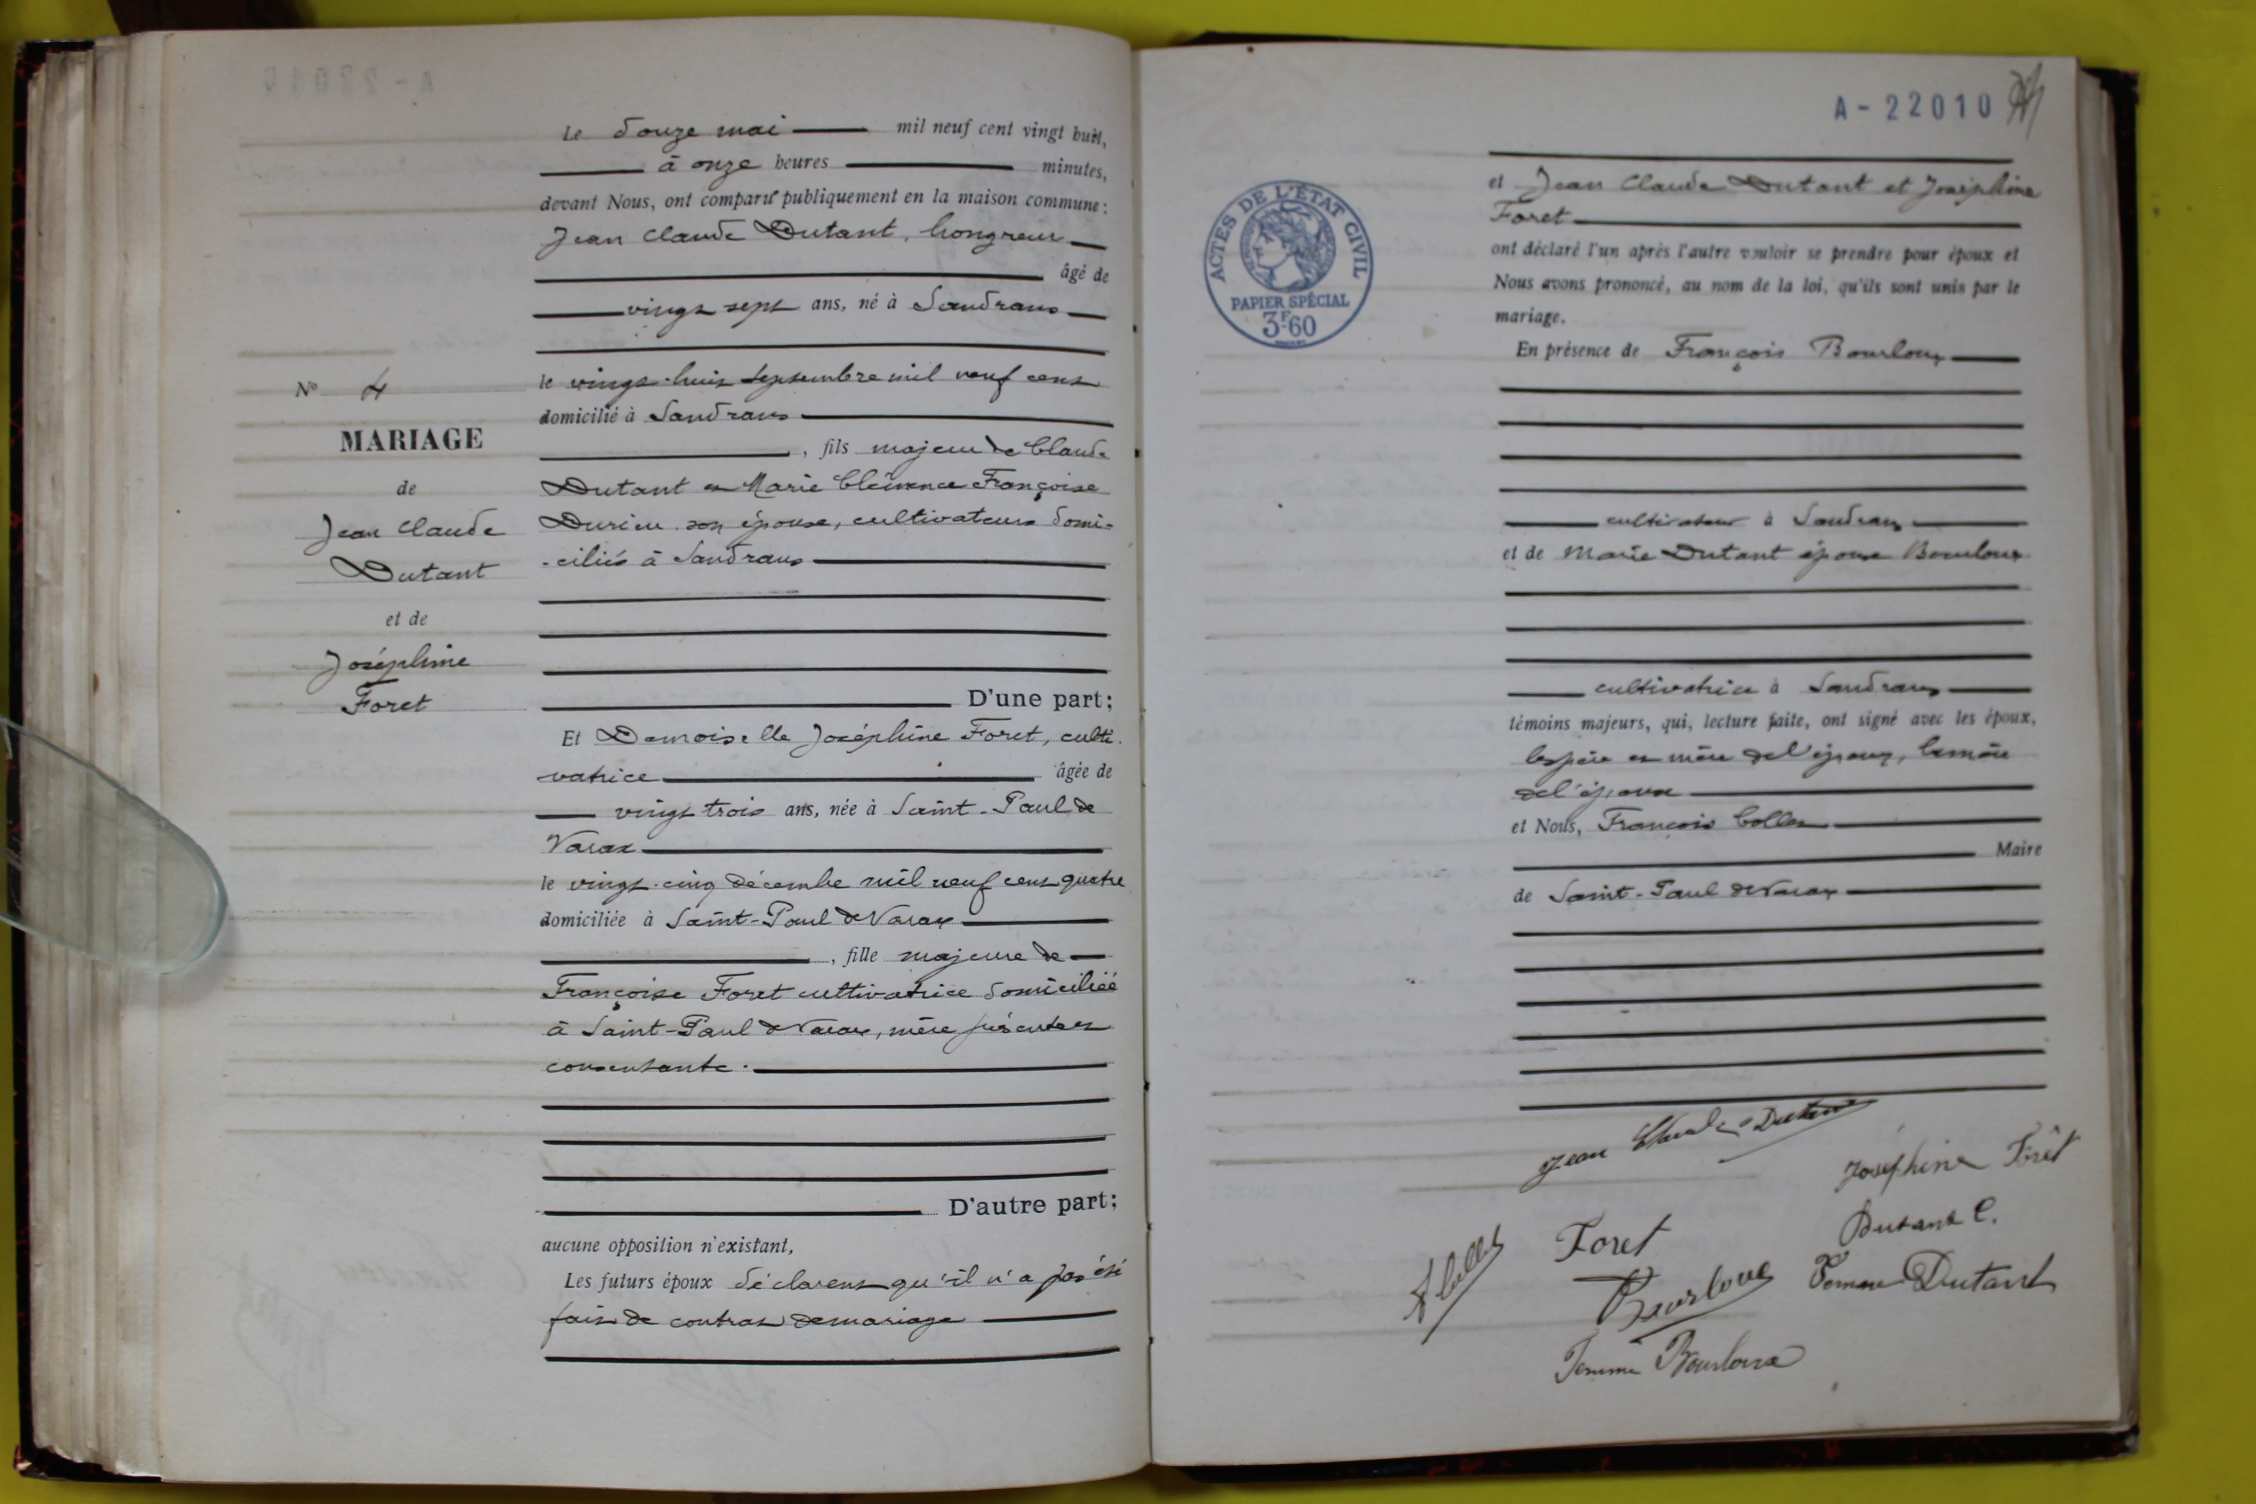 Le douze mai mil neuf cent vingt huit,
à onze heures minutes,
devant Nous, ont comparu publiquement en la maison commune :
Jean Claude Dutant, hongreur
âgé de
vingt sept ans, né à Sandrans
le vingt-huit septembre mil neuf cent
domicilié à Sandrans
, fils majeur de Claude
Dutant et Marie Clémence Françoise
Durieu son épouse, cultivateurs domi-
-ciliés à Sandrans
D'une part;
Et Demoiselle Joséphine Foret, culti-
vatrice âgée de
vingt trois ans, née à Saint-Paul de
Varax
le vingt-cinq décembre mil neuf cent quatre
domiciliée à Saint-Paul de Varax
, fille majeure de
Françoise Foret cultivatrice domiciliée
à Saint-Paul de Varax, mère présente et
consentante.
D'autre part;
aucune opposition n'existant,
Les futurs époux déclarent qu'il n'a pas été
fait de contrat de mariage
No 4
MARIAGE
de
Jean Claude
Dutant
et de
Joséphine
Foret
A-22010
ACTES DE L'ÉTAT CIVIL
PAPIER SPÉCIAL
3F.60
et Jean Claude Dutant et Joséphine
Foret
ont déclaré l'un après l'autre vouloir se prendre pour époux et
Nous avons prononcé, au nom de la loi, qu'ils sont unis par le
mariage.
En présence de François Bourloux
cultivateur à Sandrans
et de Marie Dutant épouse Bourloux
cultivatrice à Sandrans
témoins majeurs, qui, lecture faite, ont signé avec les époux,
les père et mère de l'époux, la mère
de l'épouse
et Nous, François Collet
Maire
de Saint-Paul de Varax
Jean Claude Dutant
Joséphine Forêt
Dutant C.
Foret
F Collet
Femme Dutant
Bourloux
Femme Bourloux